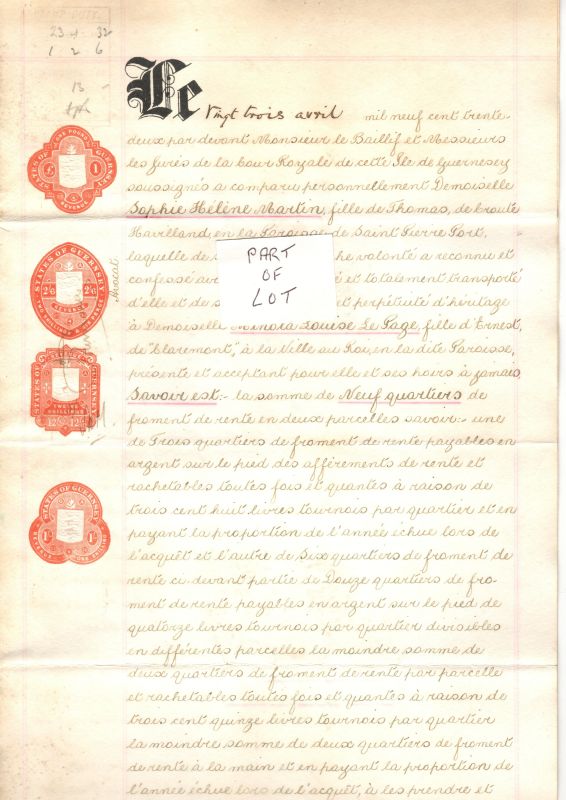 23 4 32
1 2 6
13
Le Vingt trois avril mil neuf cent trente-
deux par devant Monsieur le Baillif et Messieurs
les Jurés de la Cour Royale de cette Ile de Guernesey
soussignés a comparu personnellement Demoiselle
Sophie Hélène Martin, fille de Thomas, de broute
Havilland en la Paroisse de Saint Pierre Port,
laquelle de s he volonté a reconnu et
confessé av é et totalement transporté
d'elle et de s t perpétuité d'héritage
à Demoiselle Minora Louise Le Page, fille d'Ernest,
de "Claremont," à la Ville au Roi, en la dite Paroisse,
présente et acceptant pour elle et ses hoirs à jamais
Savoir est:- la somme de Neuf quartiers de
froment de rente en deux parcelles savoir:- une
de Trois quartiers de froment de rente payables en
argent sur le pied des afférements de rente et
rachetables toutes fois et quantes à raison de
trois cent huit livres tournois par quartier et en
payant la proportion de l'année échue lors de
l'acquêt et l'autre de Six quartiers de froment de
rente ci devant partie de Douze quartiers de fro-
ment de rente payables en argent sur le pied de
quatorze livres tournois par quartier divisibles
en différentes parcelles la moindre somme de
deux quartiers de froment de rente par parcelle
et rachetables toutes fois et quantes à raison de
trois cent quinze livres tournois par quartier
la moindre somme de deux quartiers de froment
de rente à la main et en payant la proportion de
l'année échue lors de l'acquêt, à les prendre et
PART
OF
LOT
STATES OF GUERNSEY
ONE POUND
£ 1
REVENUE
STATES OF GUERNSEY
2/6 2/6
REVENUE
TWO SHILLINGS & SIX PENCE
STATES OF GUERNSEY
TWELVE
SHILLINGS
12/ 12/
STATES OF GUERNSEY
1/- 1/-
REVENUE
ONE SHILLING
Avocat